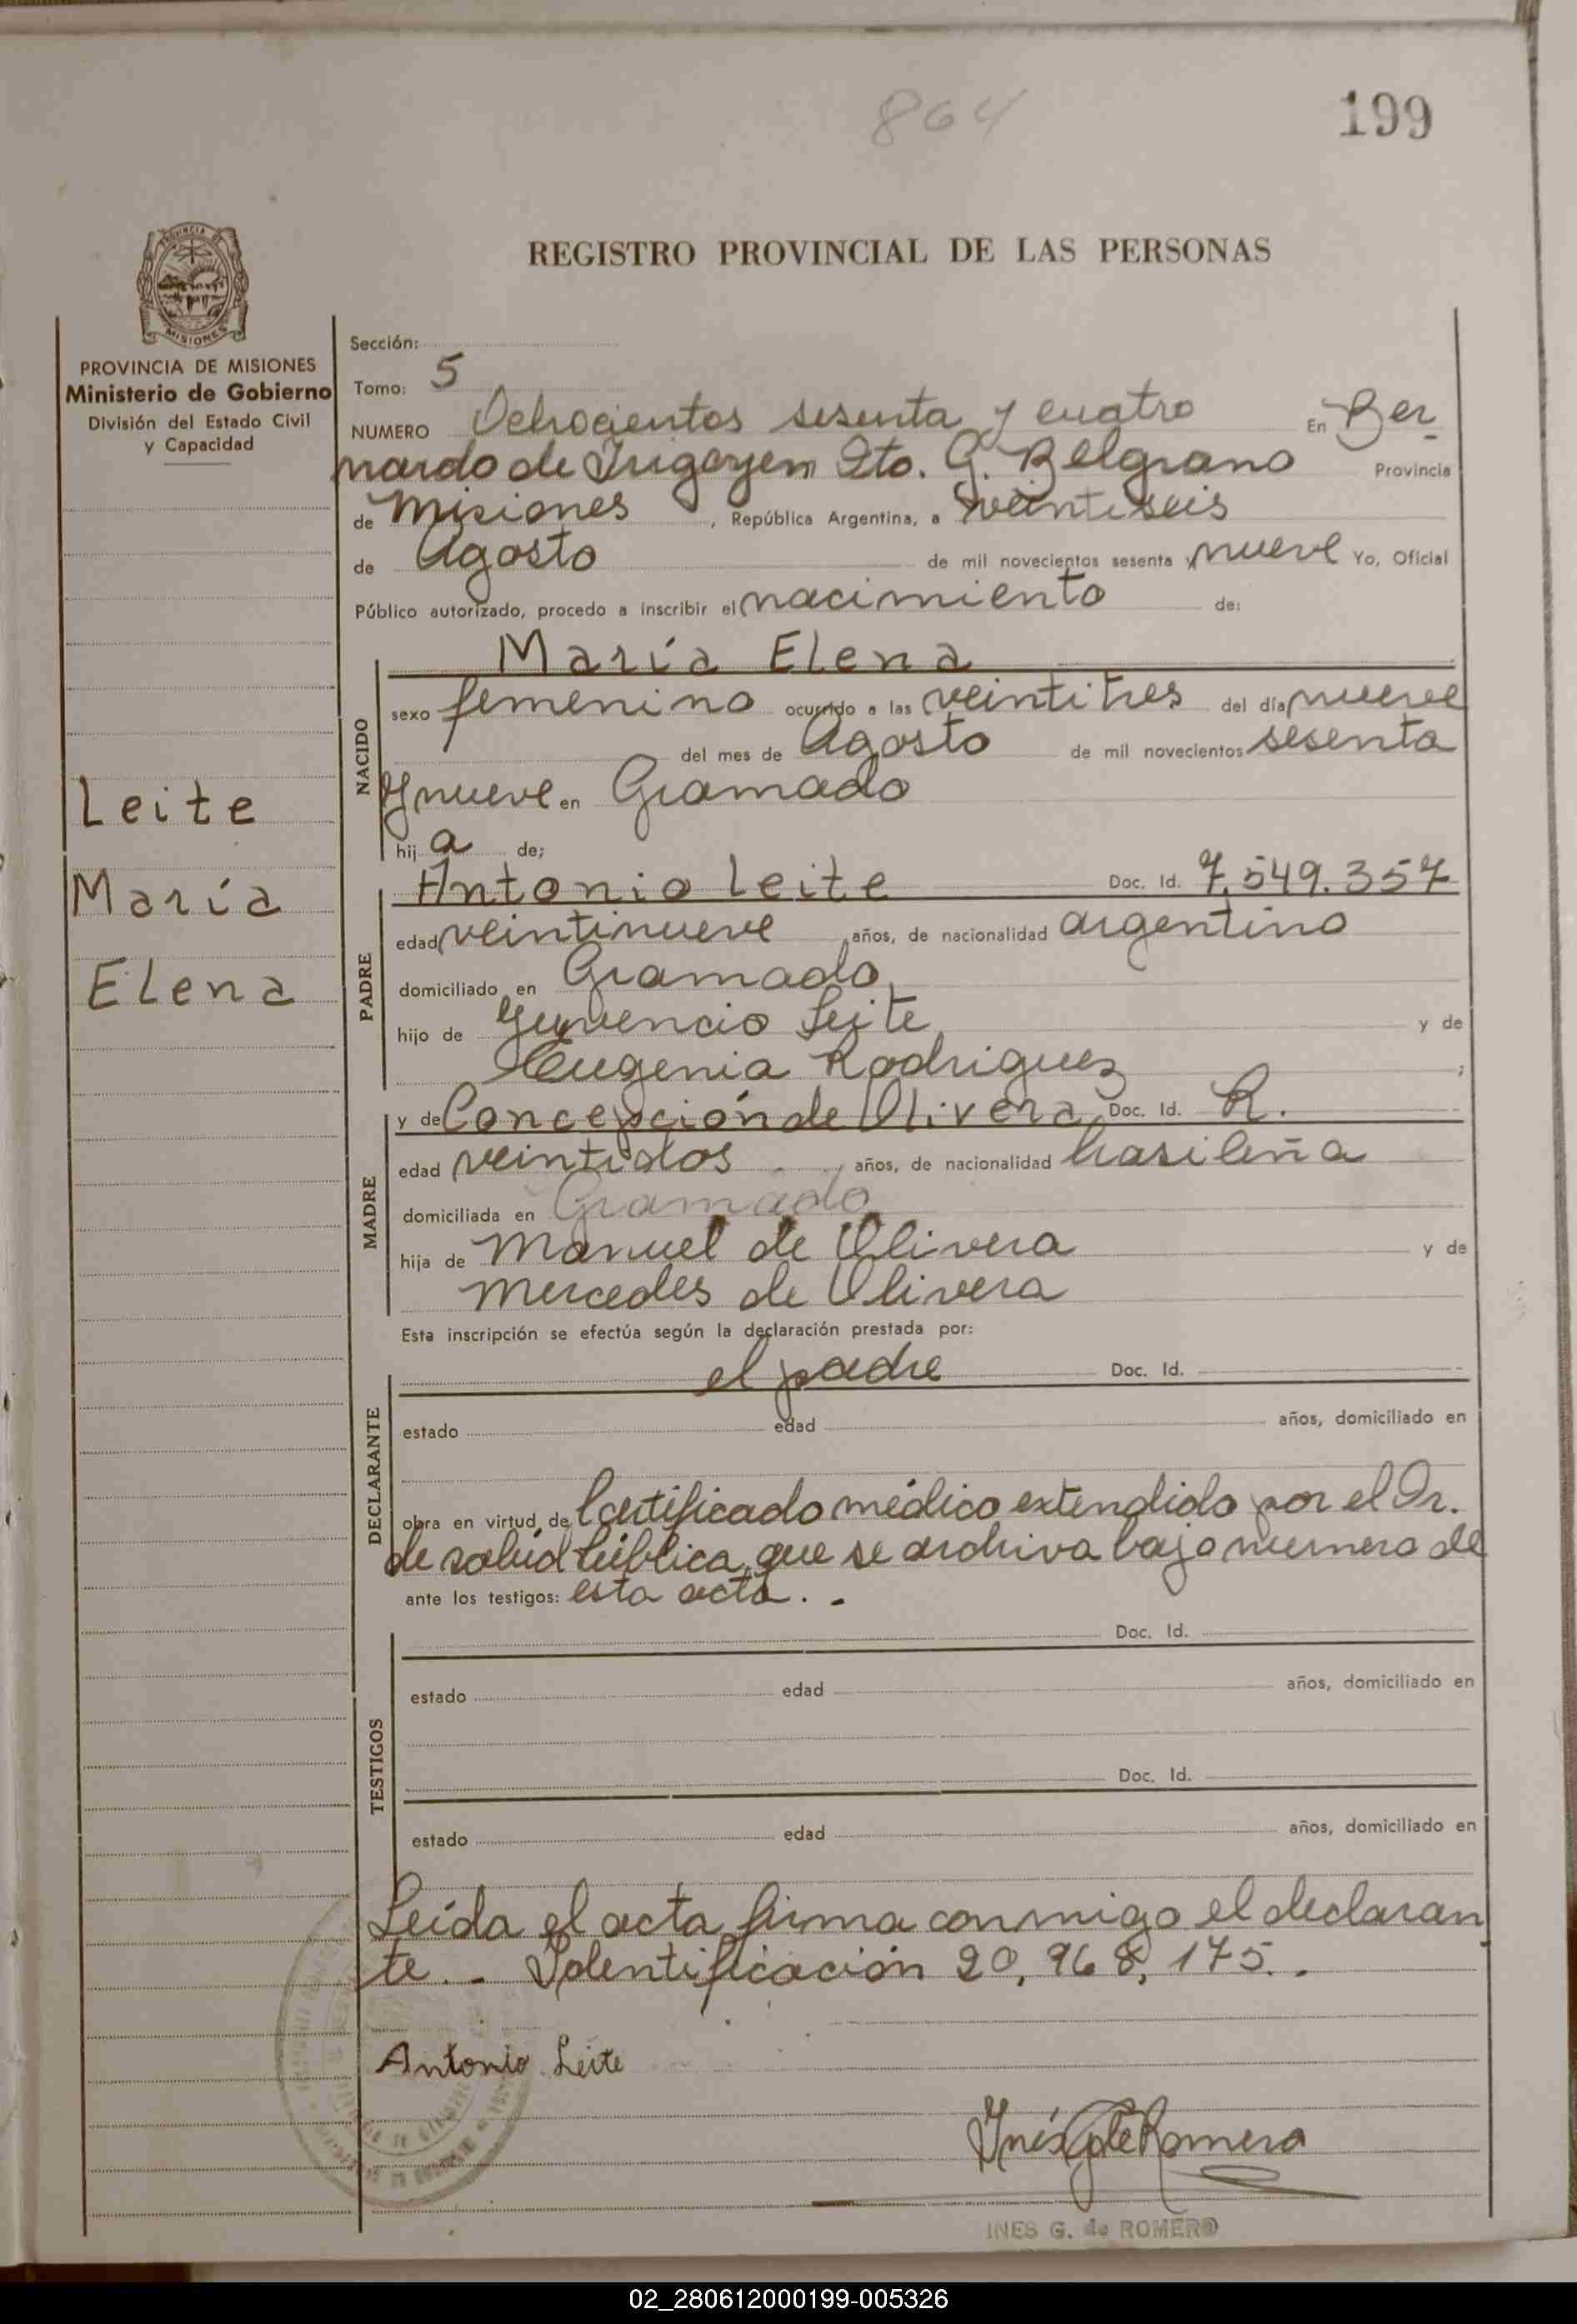 864
199
REGISTRO PROVINCIAL DE LAS PERSONAS
PROVINCIA DE MISIONES
Ministerio de Gobierno
División del Estado Civil
y Capacidad
Sección:
Tomo: 5
NUMERO Ochocientos sesenta y cuatro En Ber-
nardo de Irigoyen Dto. G. Belgrano Provincia
de Misiones, República Argentina, a veintiseis
de Agosto de mil novecientos sesenta y nueve Yo, Oficial
Público autorizado, procedo a inscribir el nacimiento de:
María Elena
NACIDO
sexo femenino ocurrido a las veintitres del día nueve
del mes de Agosto de mil novecientos sesenta
y nueve en Gramado
hija de;
Leite
María
Elena
PADRE
Antonio Leite Doc. Id. 7.549.357
edad veintinueve años, de nacionalidad argentino
domiciliado en Gramado,
hijo de Yuvencio Leite y de
Eugenia Rodriguez ;
MADRE
y de Concepción de Olivera Doc. Id. R.
edad veintidos años, de nacionalidad brasileña
domiciliada en Gramado
hija de Manuel de Olivera y de
Mercedes de Olivera
Esta inscripción se efectúa según la declaración prestada por:
DECLARANTE
el padre Doc. Id.
estado edad años, domiciliado en
obra en virtud de Certificado médico extendido por el Dr.
de salud Pública, que se archiva bajo numero de
ante los testigos: esta acta. -
TESTIGOS
Doc. Id.
estado edad años, domiciliado en
Doc. Id.
estado edad años, domiciliado en
Leída el acta firma conmigo el declaran
te. - Identificación 20,968,175. -
Antonio Leite
Inés G de Romero
INES G. de ROMERO
02_280612000199-005326